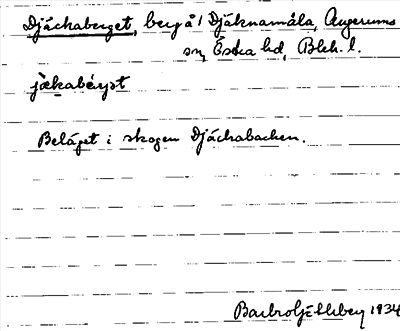 Djäckaberget, berg å 1 Djäknamåla, Augerums
sn, Östra hd, Blek. l.
jäkabärjet
Beläget i skogen Djäckabacken.
1934